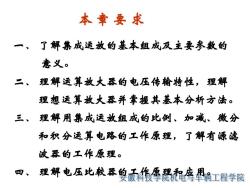 本 章 要 求
一、 了解集成运放的基本组成及主要参数的
意义。
二、 理解运算放大器的电压传输特性，理解
理想运算放大器并掌握其基本分析方法。
三、 理解用集成运放组成的比例、加减、微分
和积分运算电路的工作原理，了解有源滤
波器的工作原理。
四、 理解电压比较器的工作原理和应用。
安徽科技学院机电与车辆工程学院